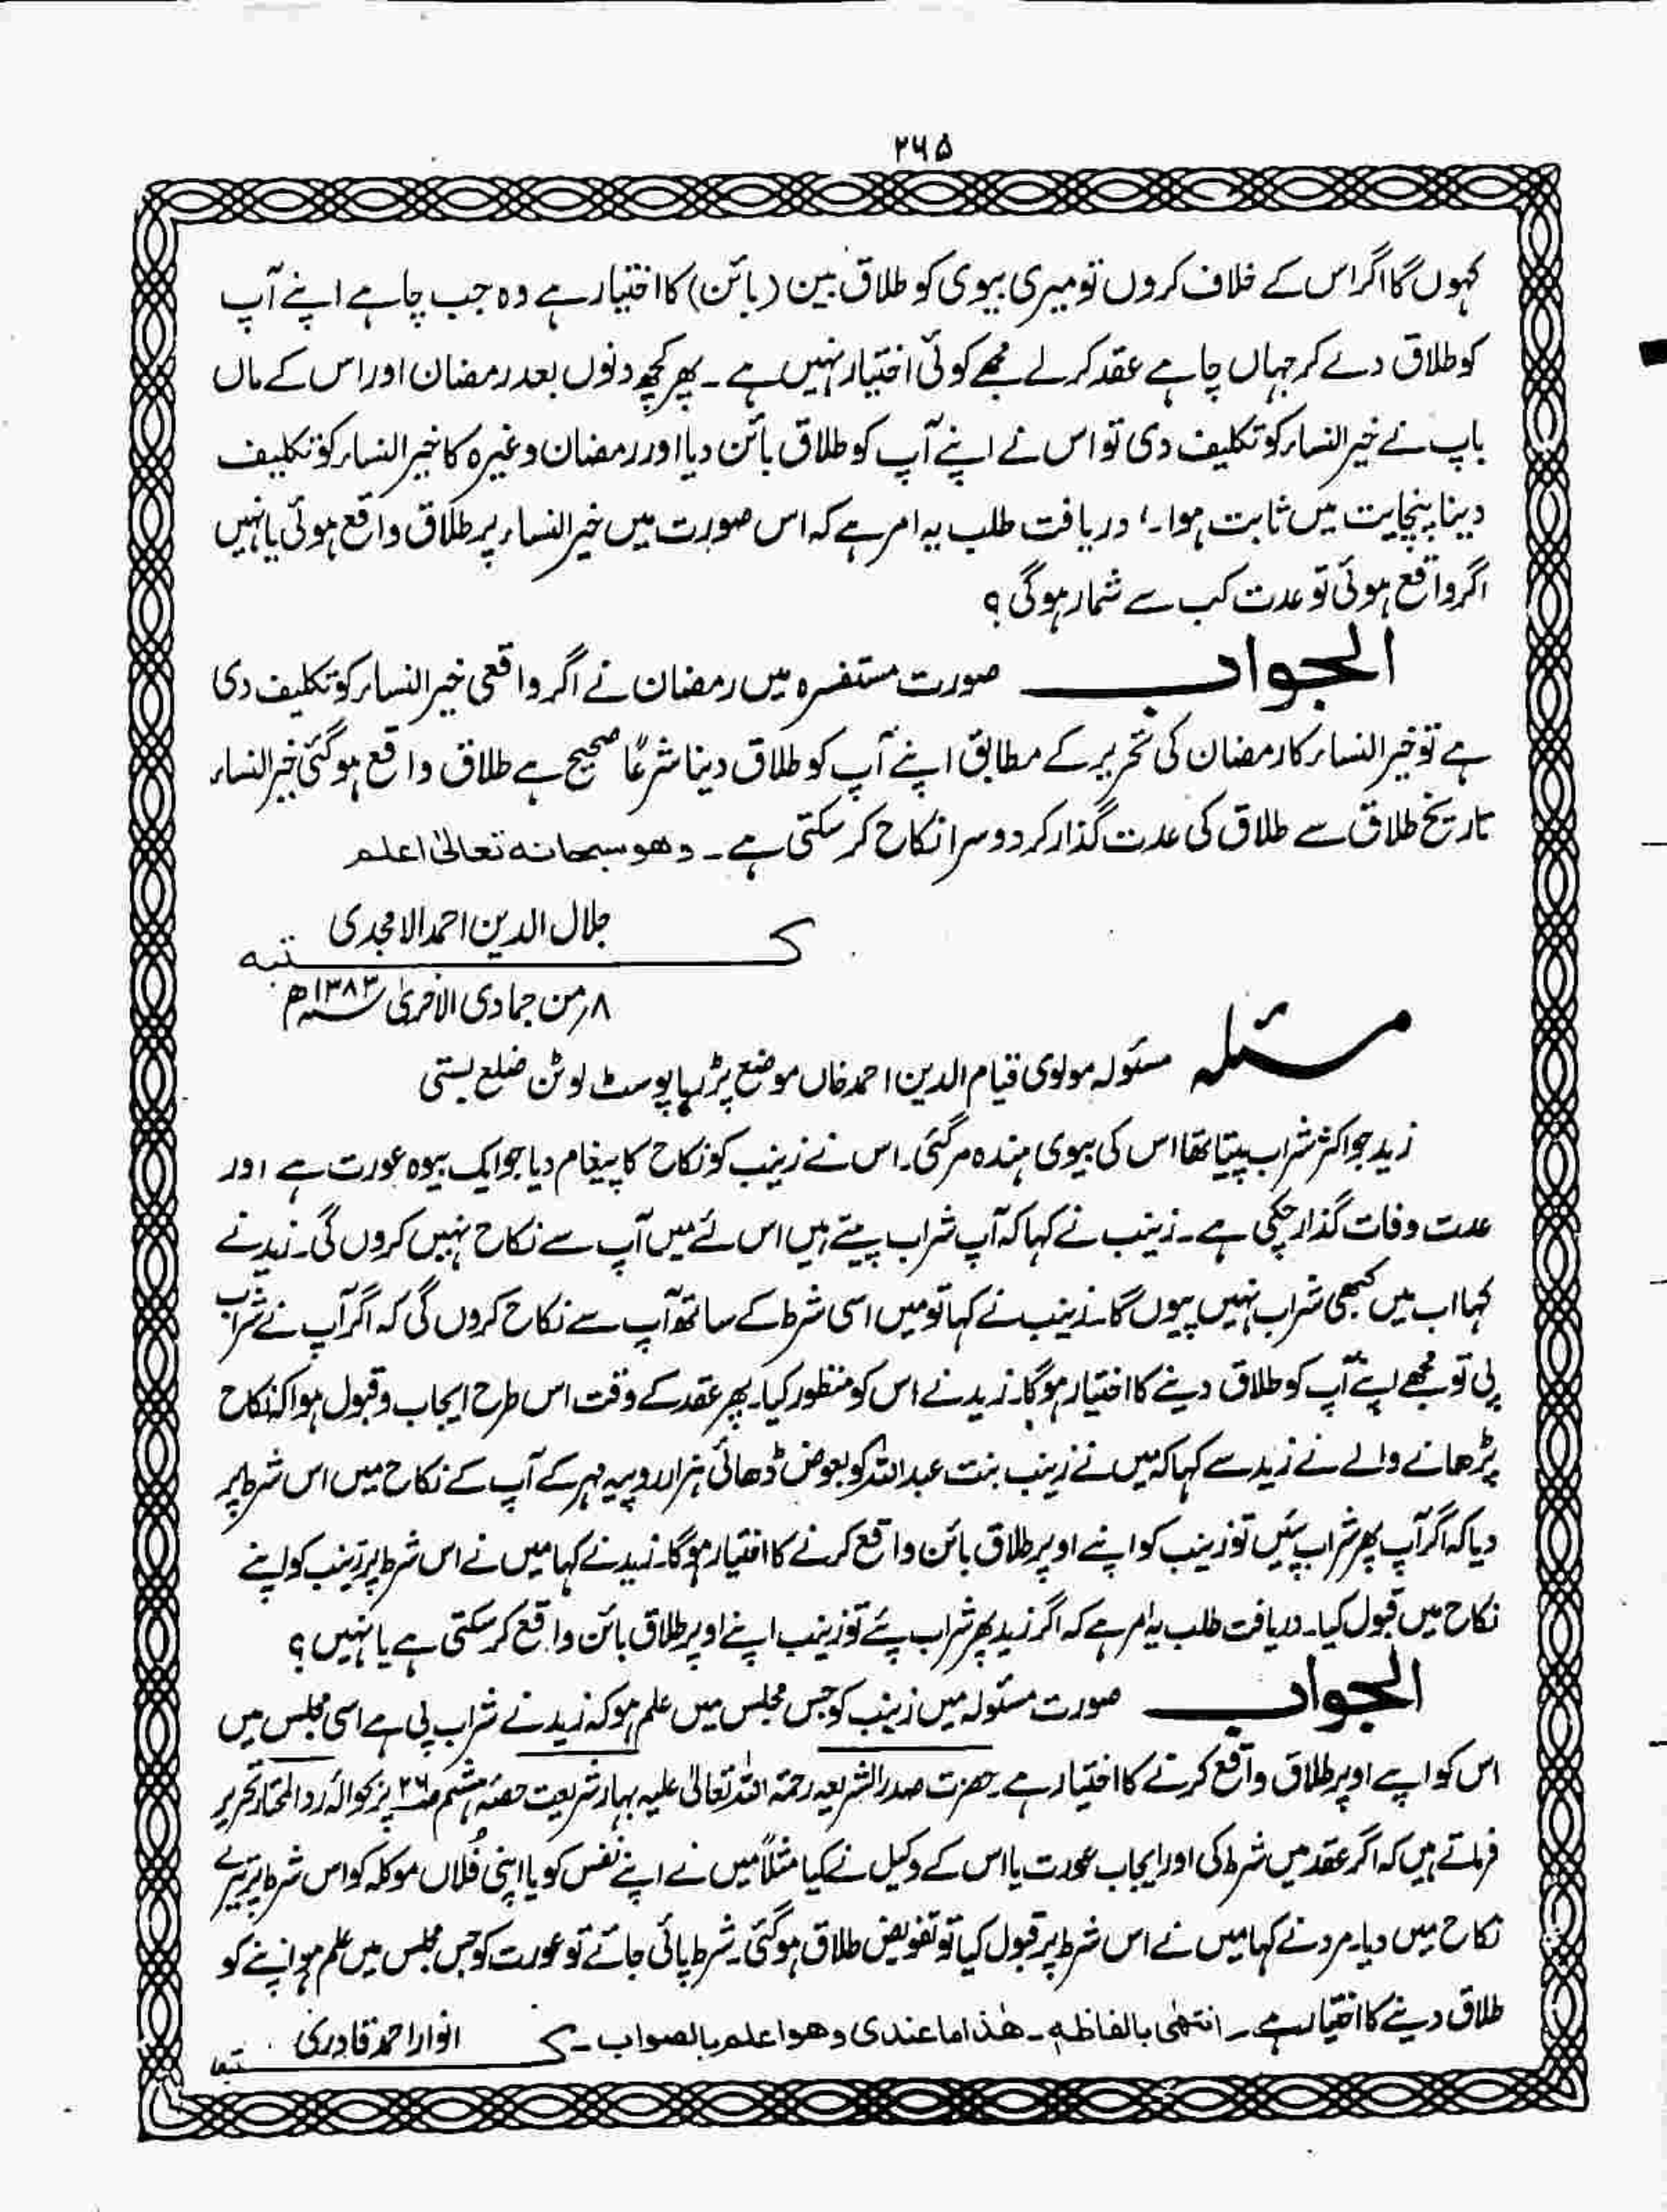 ۲۶۵
کہوں گا اگر اس کے خلاف کروں تو میری بیوی کو طلاق بین (بائن) کا اختیار ہے وہ جب چاہے اپنے آپ
کو طلاق دے کر جہاں چاہے عقد کر لے مجھے کوئی اختیار نہیں ہے ۔ پھر کچھ دنوں بعد رمضان اور اس کے ماں
باپ نے خیر النساء کو تکلیف دی تو اس نے اپنے آپ کو طلاق بائن دیا اور رمضان وغیرہ کا خیر النساء کو تکلیف
دینا پنچایت میں ثابت ہوا ۔ دریافت طلب یہ امر ہے کہ اس صورت میں خیر النساء پر طلاق واقع ہوئی یا نہیں
اگر واقع ہوئی تو عدت کب سے شمار ہوگی ؟
الجواب صورت مستفسرہ میں رمضان نے اگر واقعی خیر النساء کو تکلیف دی
ہے تو خیر النساء کا رمضان کی تحریر کے مطابق اپنے آپ کو طلاق دینا شرعًا صحیح ہے طلاق واقع ہوگئی خیر النساء
تاریخ طلاق سے طلاق کی عدت گذار کر دوسرا نکاح کر سکتی ہے ۔ وھو سبحانہ تعالیٰ اعلم
جلال الدین احمد الامجدی
کتبہ
۸؍ من جمادی الاخریٰ ۱۳۸۳ھ
مسئلہ مسئولہ مولوی قیام الدین احمد خاں موضع پڑیا پوسٹ لوٹن ضلع بستی
زید جو اکثر شراب پیتا تھا اس کی بیوی ہندہ مر گئی ۔ اس نے زینب کو نکاح کا پیغام دیا جو ایک بیوہ عورت ہے اور
عدت وفات گذار چکی ہے ۔ زینب نے کہا کہ آپ شراب پیتے ہیں اس لئے میں آپ سے نکاح نہیں کروں گی ۔ زید نے
کہا اب میں کبھی شراب نہیں پیوں گا ۔ زینب نے کہا تو میں اسی شرط کے ساتھ آپ سے نکاح کروں گی کہ اگر آپ نے شراب
پی تو مجھے اپنے آپ کو طلاق دینے کا اختیار ہوگا ۔ زید نے اس کو منظور کیا ۔ پھر عقد کے وقت اس طرح ایجاب و قبول ہوا کہ نکاح
پڑھانے والے نے زید سے کہا کہ میں نے زینب بنت عبداللہ کو بعوض ڈھائی ہزار روپیہ مہر کے آپ کے نکاح میں اس شرط پر
دیا کہ اگر آپ پھر شراب پئیں تو زینب کو اپنے اوپر طلاق بائن واقع کرنے کا اختیار ہوگا ۔ زید نے کہا میں نے اس شرط پر زینب کو اپنے
نکاح میں قبول کیا ۔ دریافت طلب یہ امر ہے کہ اگر زید پھر شراب پئے تو زینب اپنے اوپر طلاق بائن واقع کر سکتی ہے یا نہیں ؟
الجواب صورت مسئولہ میں زینب کو جس مجلس میں علم ہو کہ زید نے شراب پی ہے اسی مجلس میں
اس کو اپنے اوپر طلاق واقع کرنے کا اختیار ہے ۔ حضرت صدر الشریعہ رحمۃ اللہ تعالیٰ علیہ بہار شریعت حصہ ہشتم ص۲۶ پر بحوالہ رد المحتار تحریر
فرماتے ہیں کہ اگر عقد میں شرط کی اور ایجاب عورت یا اس کے وکیل نے کیا مثلاً میں نے اپنے نفس کو یا اپنی فلاں موکلہ کو اس شرط پر تیرے
نکاح میں دیا ۔ مرد نے کہا میں نے اس شرط پر قبول کیا تو تفویض طلاق ہوگئی ۔ شرط پائی جائے تو عورت کو جس مجلس میں علم ہو اپنے کو
طلاق دینے کا اختیار ہے ۔ انتھیٰ بالفاظہ ۔ ھٰذا ما عندی وھو اعلم بالصواب ۔ کتبہ انوار احمد قادری